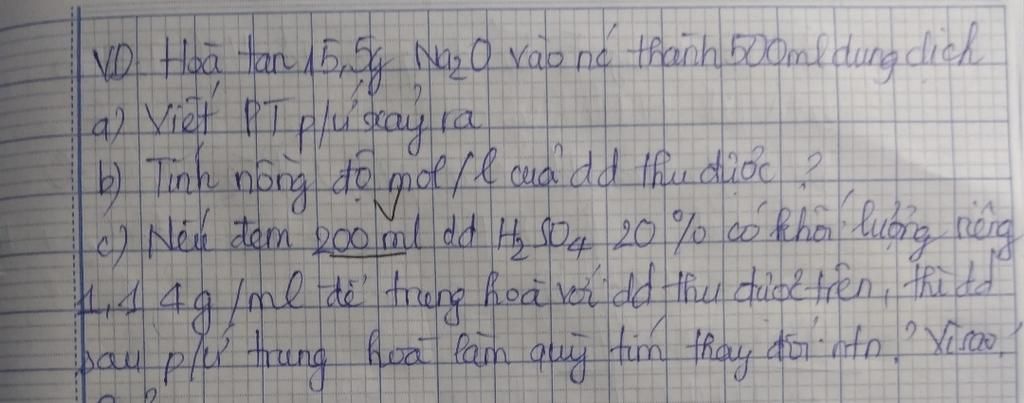 VD Hoà tan 15,5g Na₂O vào nc thành 500ml dung dịch
a) Viết PT p/ứ xảy ra
b) Tính nồng độ mol/l của dd thu được ?
c) Nếu đem 200 ml dd H₂SO₄ 20% có khối lượng riêng
1,14g/ml để trung hoà với dd thu được trên, thì dd
sau p/ứ trung hoà làm quỳ tím thay đổi ntn? Vì sao?